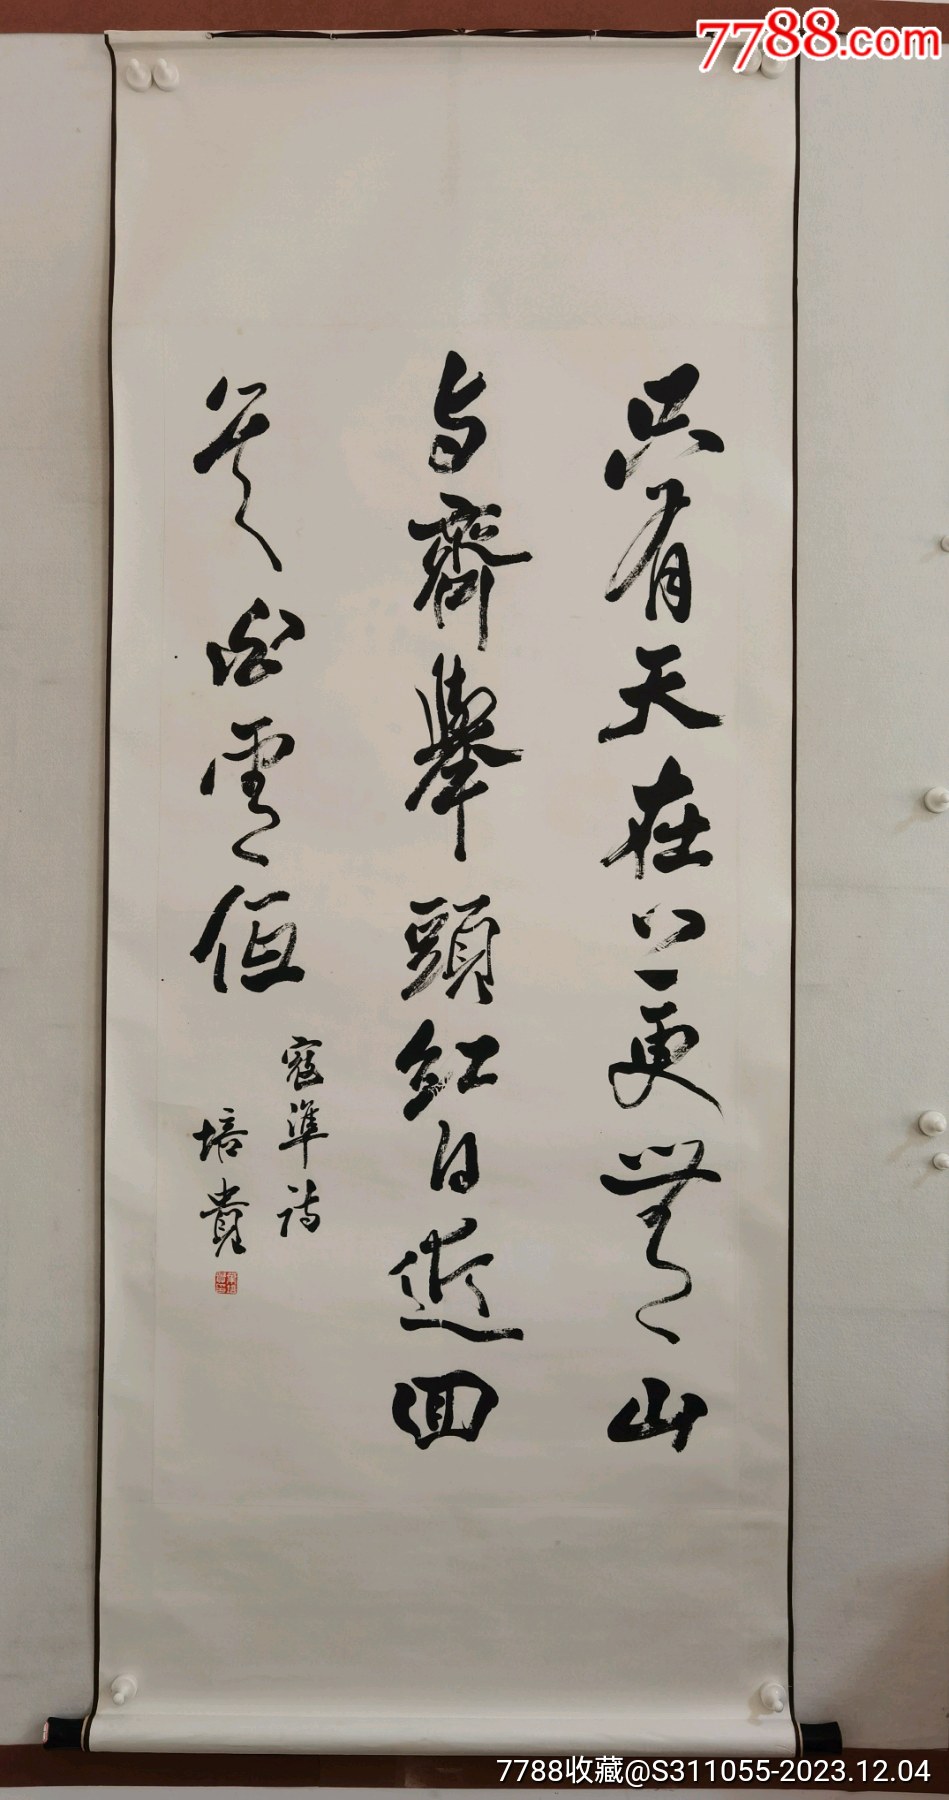 7788.com
只有天在上更無山
与齊舉頭紅日近回
首白雲低
寇準詩
培貴
7788收藏@S311055-2023.12.04